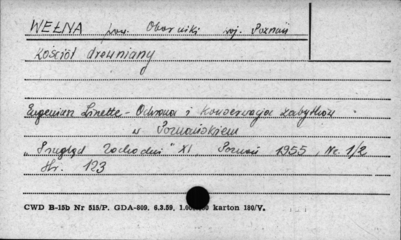 WEŁNA pow. Oborniki woj. Poznań
Kościół drewniany
Eugeniusz Linette - Ochrona i konserwacja zabytków
w Poznańskiem
"Przegląd Zachodni" XI Poznań 1955, Nr. 1/2
str. 123
CWD B-15b Nr 515/P. GDA-809. 6.3.59. karton 180/V.